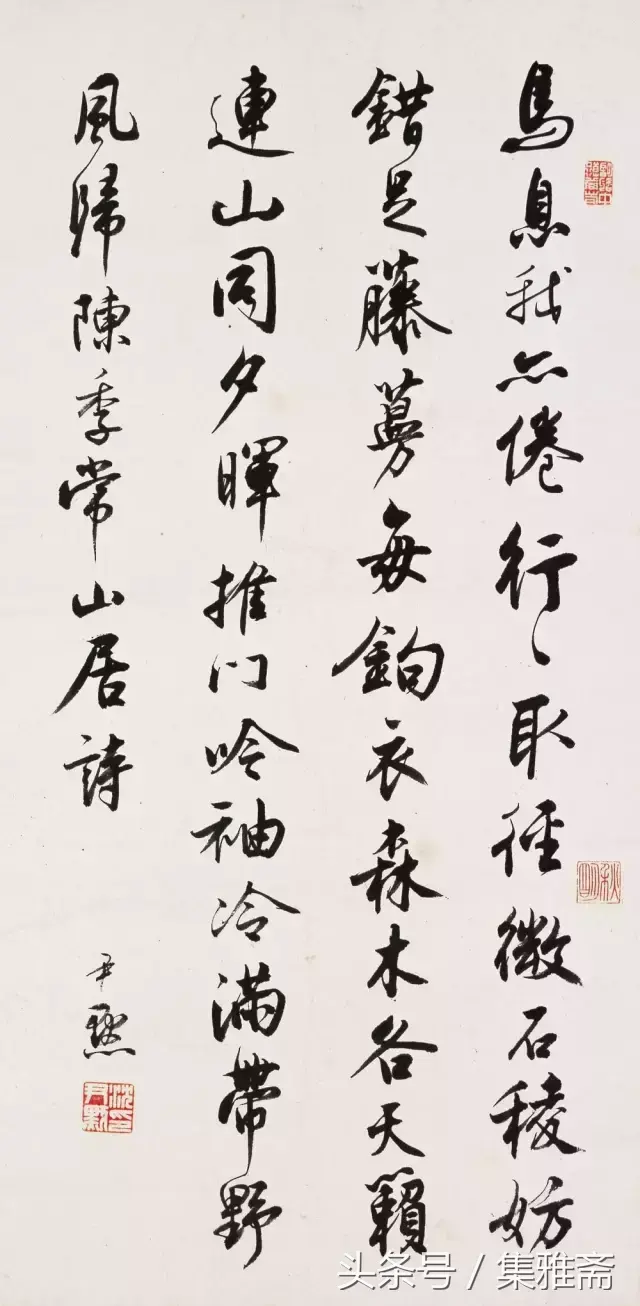 馬息我亦倦行々取徑微石稜妨
錯足藤蔓每鈎衣森木各天籟
連山同夕暉推门吟袖冷滿帶野
風歸陳季常山居詩
尹默
沈尹默印
秋明
头条号 / 集雅斋